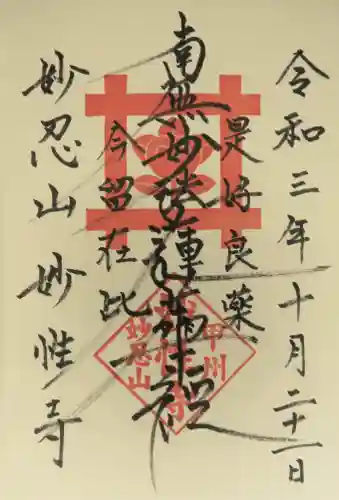 令和三年十月二十一日
是好良薬
南無妙法蓮華経
今留在此
妙忍山妙性寺
甲州
妙忍山